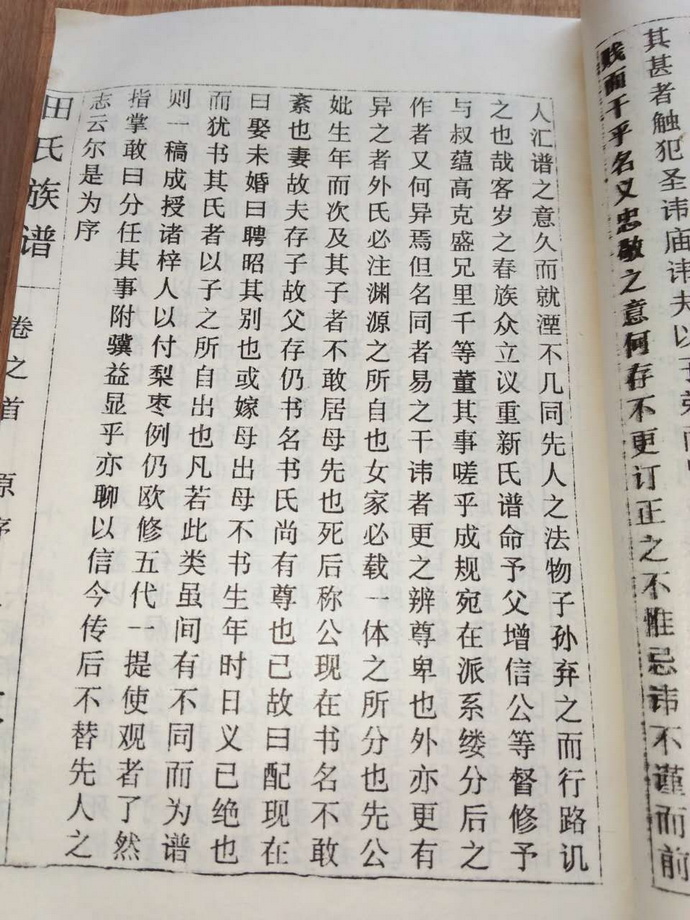 其甚者触犯圣讳庙讳夫以子弟
贱而干乎名义忠敬之意何存不更订正之不惟忌讳不谨而前
人汇谱之意久而就湮不几同先人之法物子孙弃之而行路讥
之也哉客岁之春族众立议重新氏谱命予父增信公等督修予
与叔蕴高克盛兄里千等董其事嗟乎成规宛在派系缕分后之
作者又何异焉但名同者易之干讳者更之辨尊卑也外亦更有
异之者外氏必注渊源之所自也女家必载一体之所分也先公
妣生年而次及其子者不敢居母先也死后称公现在书名不敢
紊也妻故夫存子故父存仍书名书氏尚有尊也已故曰配现在
曰娶未婚曰聘昭其别也或嫁母出母不书生年时日义已绝也
而犹书其氏者以子之所自出也凡若此类虽间有不同而为谱
则一稿成授诸梓人以付梨枣例仍欧修五代一提使观者了然
指掌敢曰分任其事附骥益显乎亦聊以信今传后不替先人之
志云尔是为序
田氏族谱
卷之首
原序